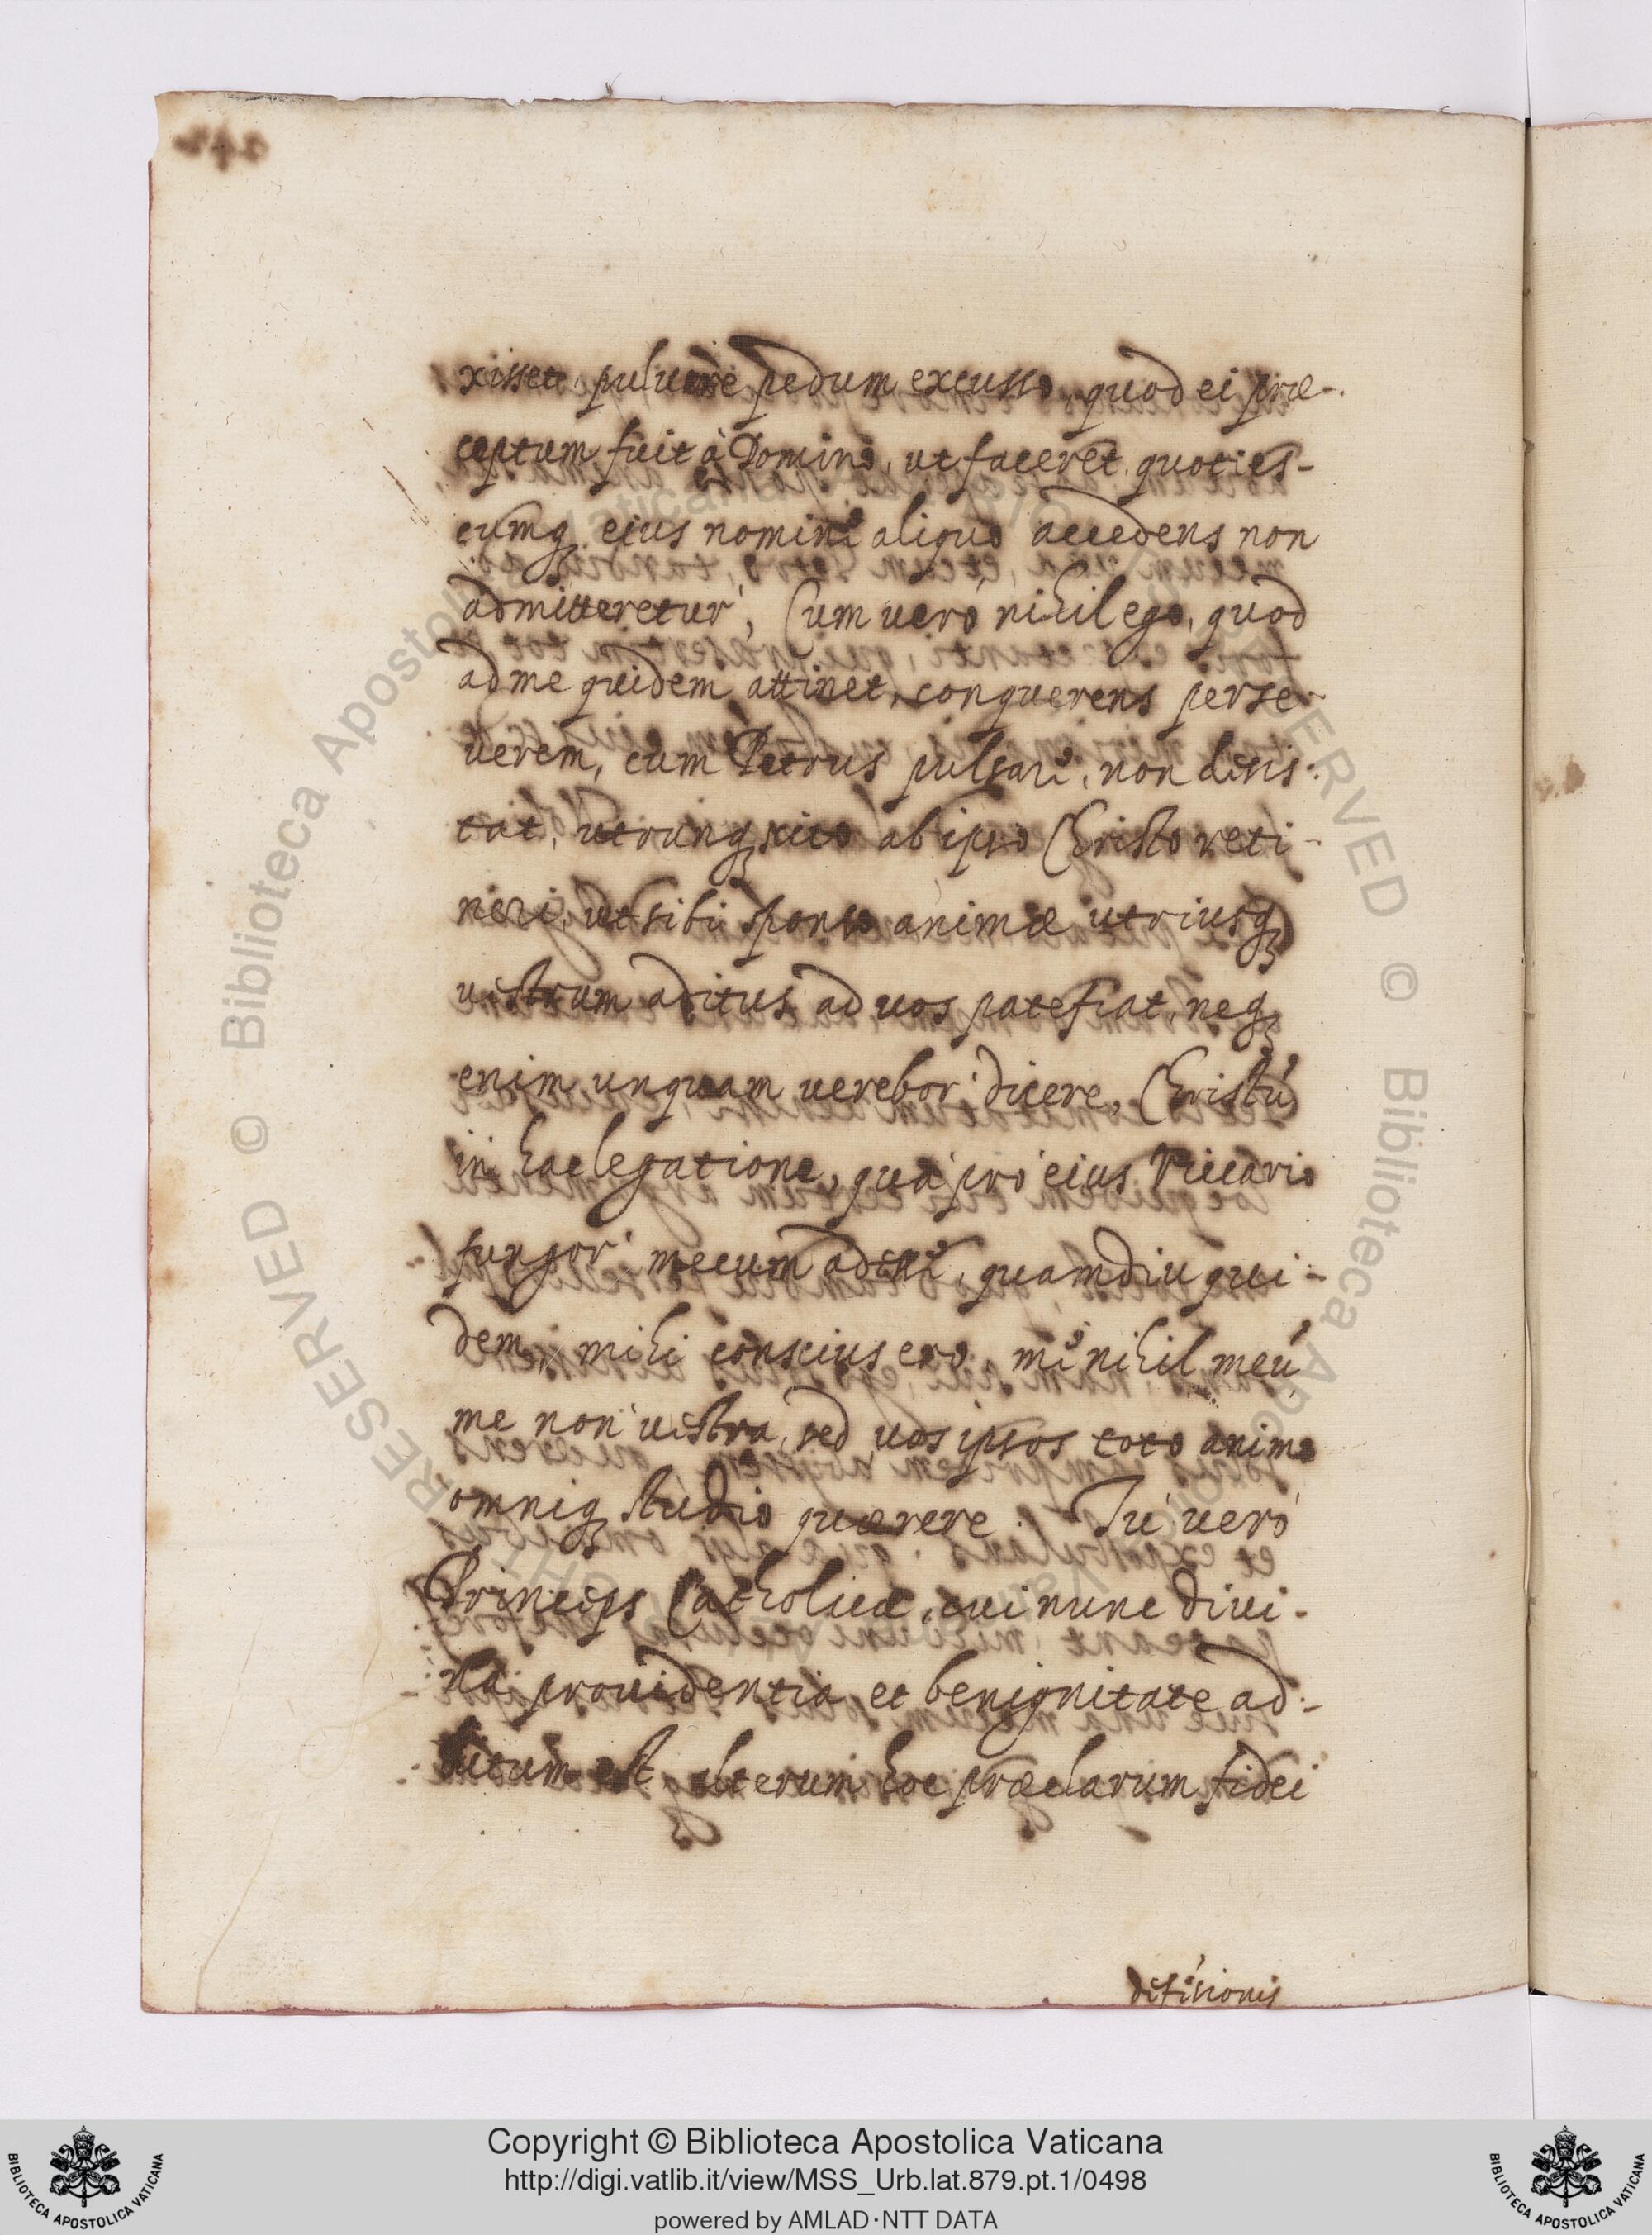 xisset, puluere pedum excusso, quod ei præ-
ceptum fuit à Domino, ut faceret quoties-
cumq eius nomine aliquo accedens non
admitteretur, Cum uero nihil ego, quod
ad me quidem attinet, conquerens perse-
uerem, cum Petrus pulsare, non desis-
tat, utrunq scito ab ipso Christo reti-
neri, ut sibi sponso animæ utriusq
uestrum aditus ad uos patefiat, neq
enim unquam uerebor dicere, Christũ
in hac legatione, qua pro eius Vicario
fungor mecum adesse, quamdiu qui-
dem mihi conscius ero, me nihil meũ
me non uestra, sed uos ipsos toto animo
omniq studio quærere. Tu uero
Princeps Catholice, cui nunc diui-
na prouidentia et benignitate ad-
ditum est alterum hoc præclarum fidei
defensionis
Copyright © Biblioteca Apostolica Vaticana
http://digi.vatlib.it/view/MSS_Urb.lat.879.pt.1/0498
powered by AMLAD·NTT DATA